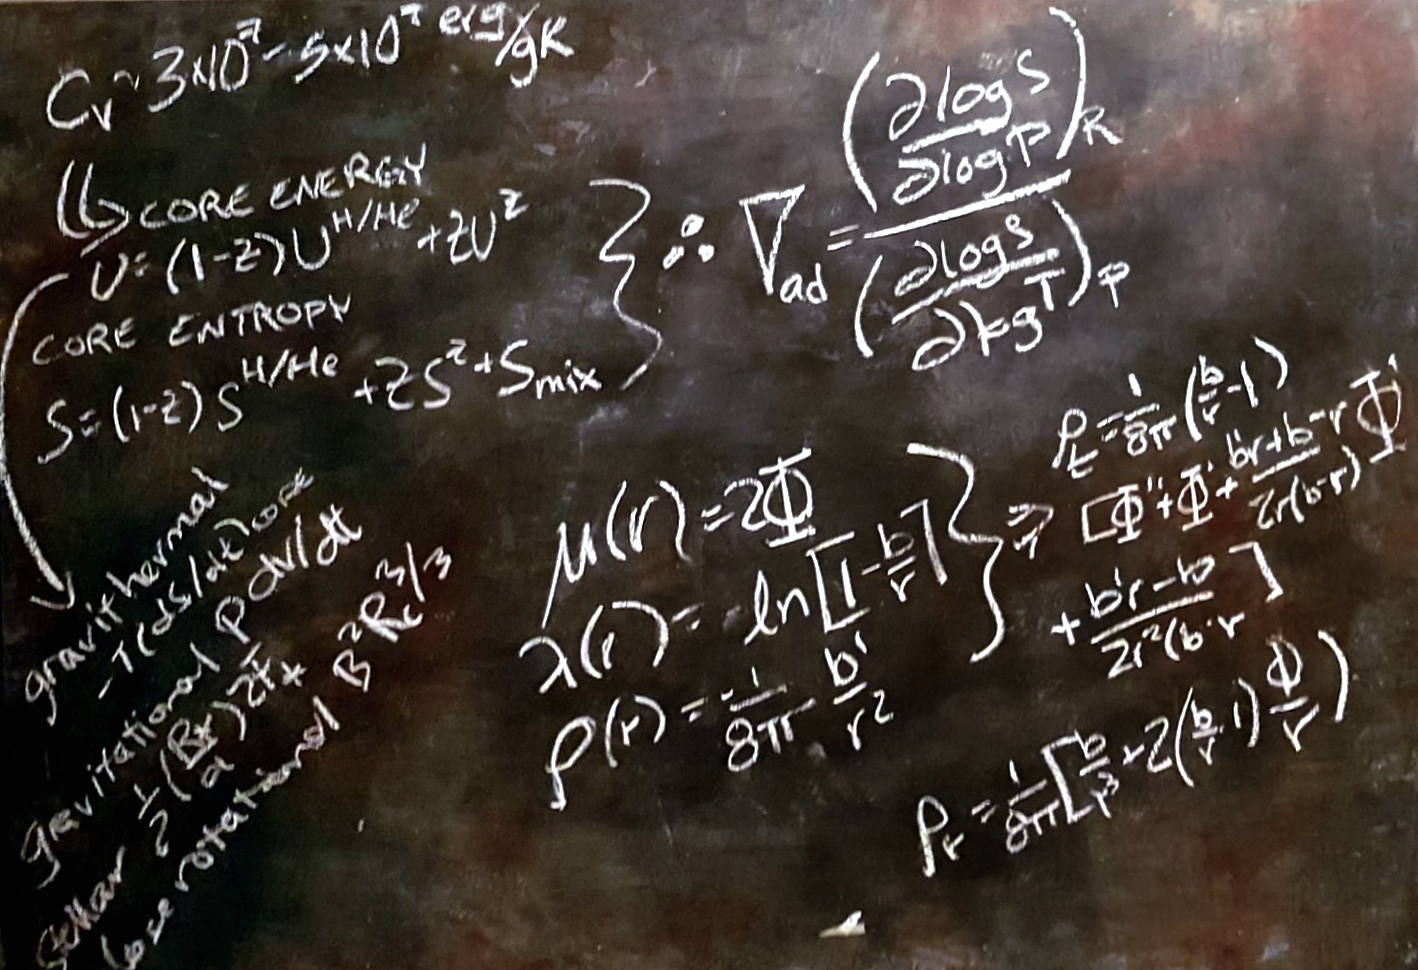 Cv ~ 3x10⁷ - 5x10⁷ erg/gK
↳ CORE ENERGY
U = (1-Z)U^H/He + ZU^Z
CORE ENTROPY
S = (1-Z)S^H/He + ZS^Z + Smix
∴ ∇ad = (∂logS/∂logP)R / (∂logS/∂logT)P
gravithermal
-T(ds/dt)core
gravitational P dv/dt
stellar ½(R*/a)2F*
rotational B²Rc³/3
μ(r) = 2Φ
λ(r) = -ln[1-b/r]
ρ(r) = -1/8π b'/r²
⇒ Pt = 1/8π (b/r - 1)
[Φ'' + Φ' + b'r+b-r/2r(b-r) Φ'
+ b'r-b/2r²(b-r]
Pr = 1/8π [b/r³ + 2(b/r-1) Φ/r)